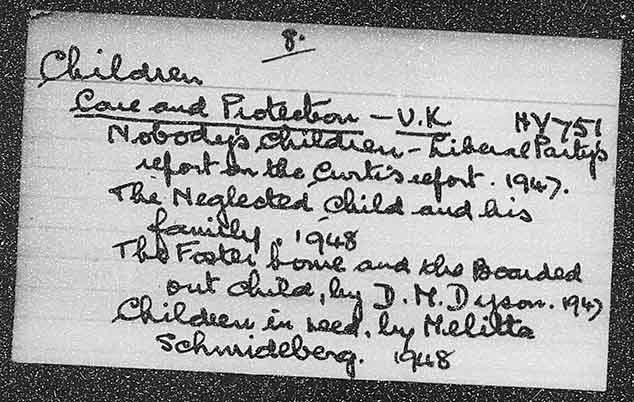 8.
Children
Care and Protection - U.K. HV751
Nobody's Children - Liberal Party's
report on the Curtis report. 1947.
The Neglected Child and his
family. 1948
The Foster home and the Boarded
out child, by D. M. Dyson. 1947
Children in need, by Melitta
Schmideberg. 1948